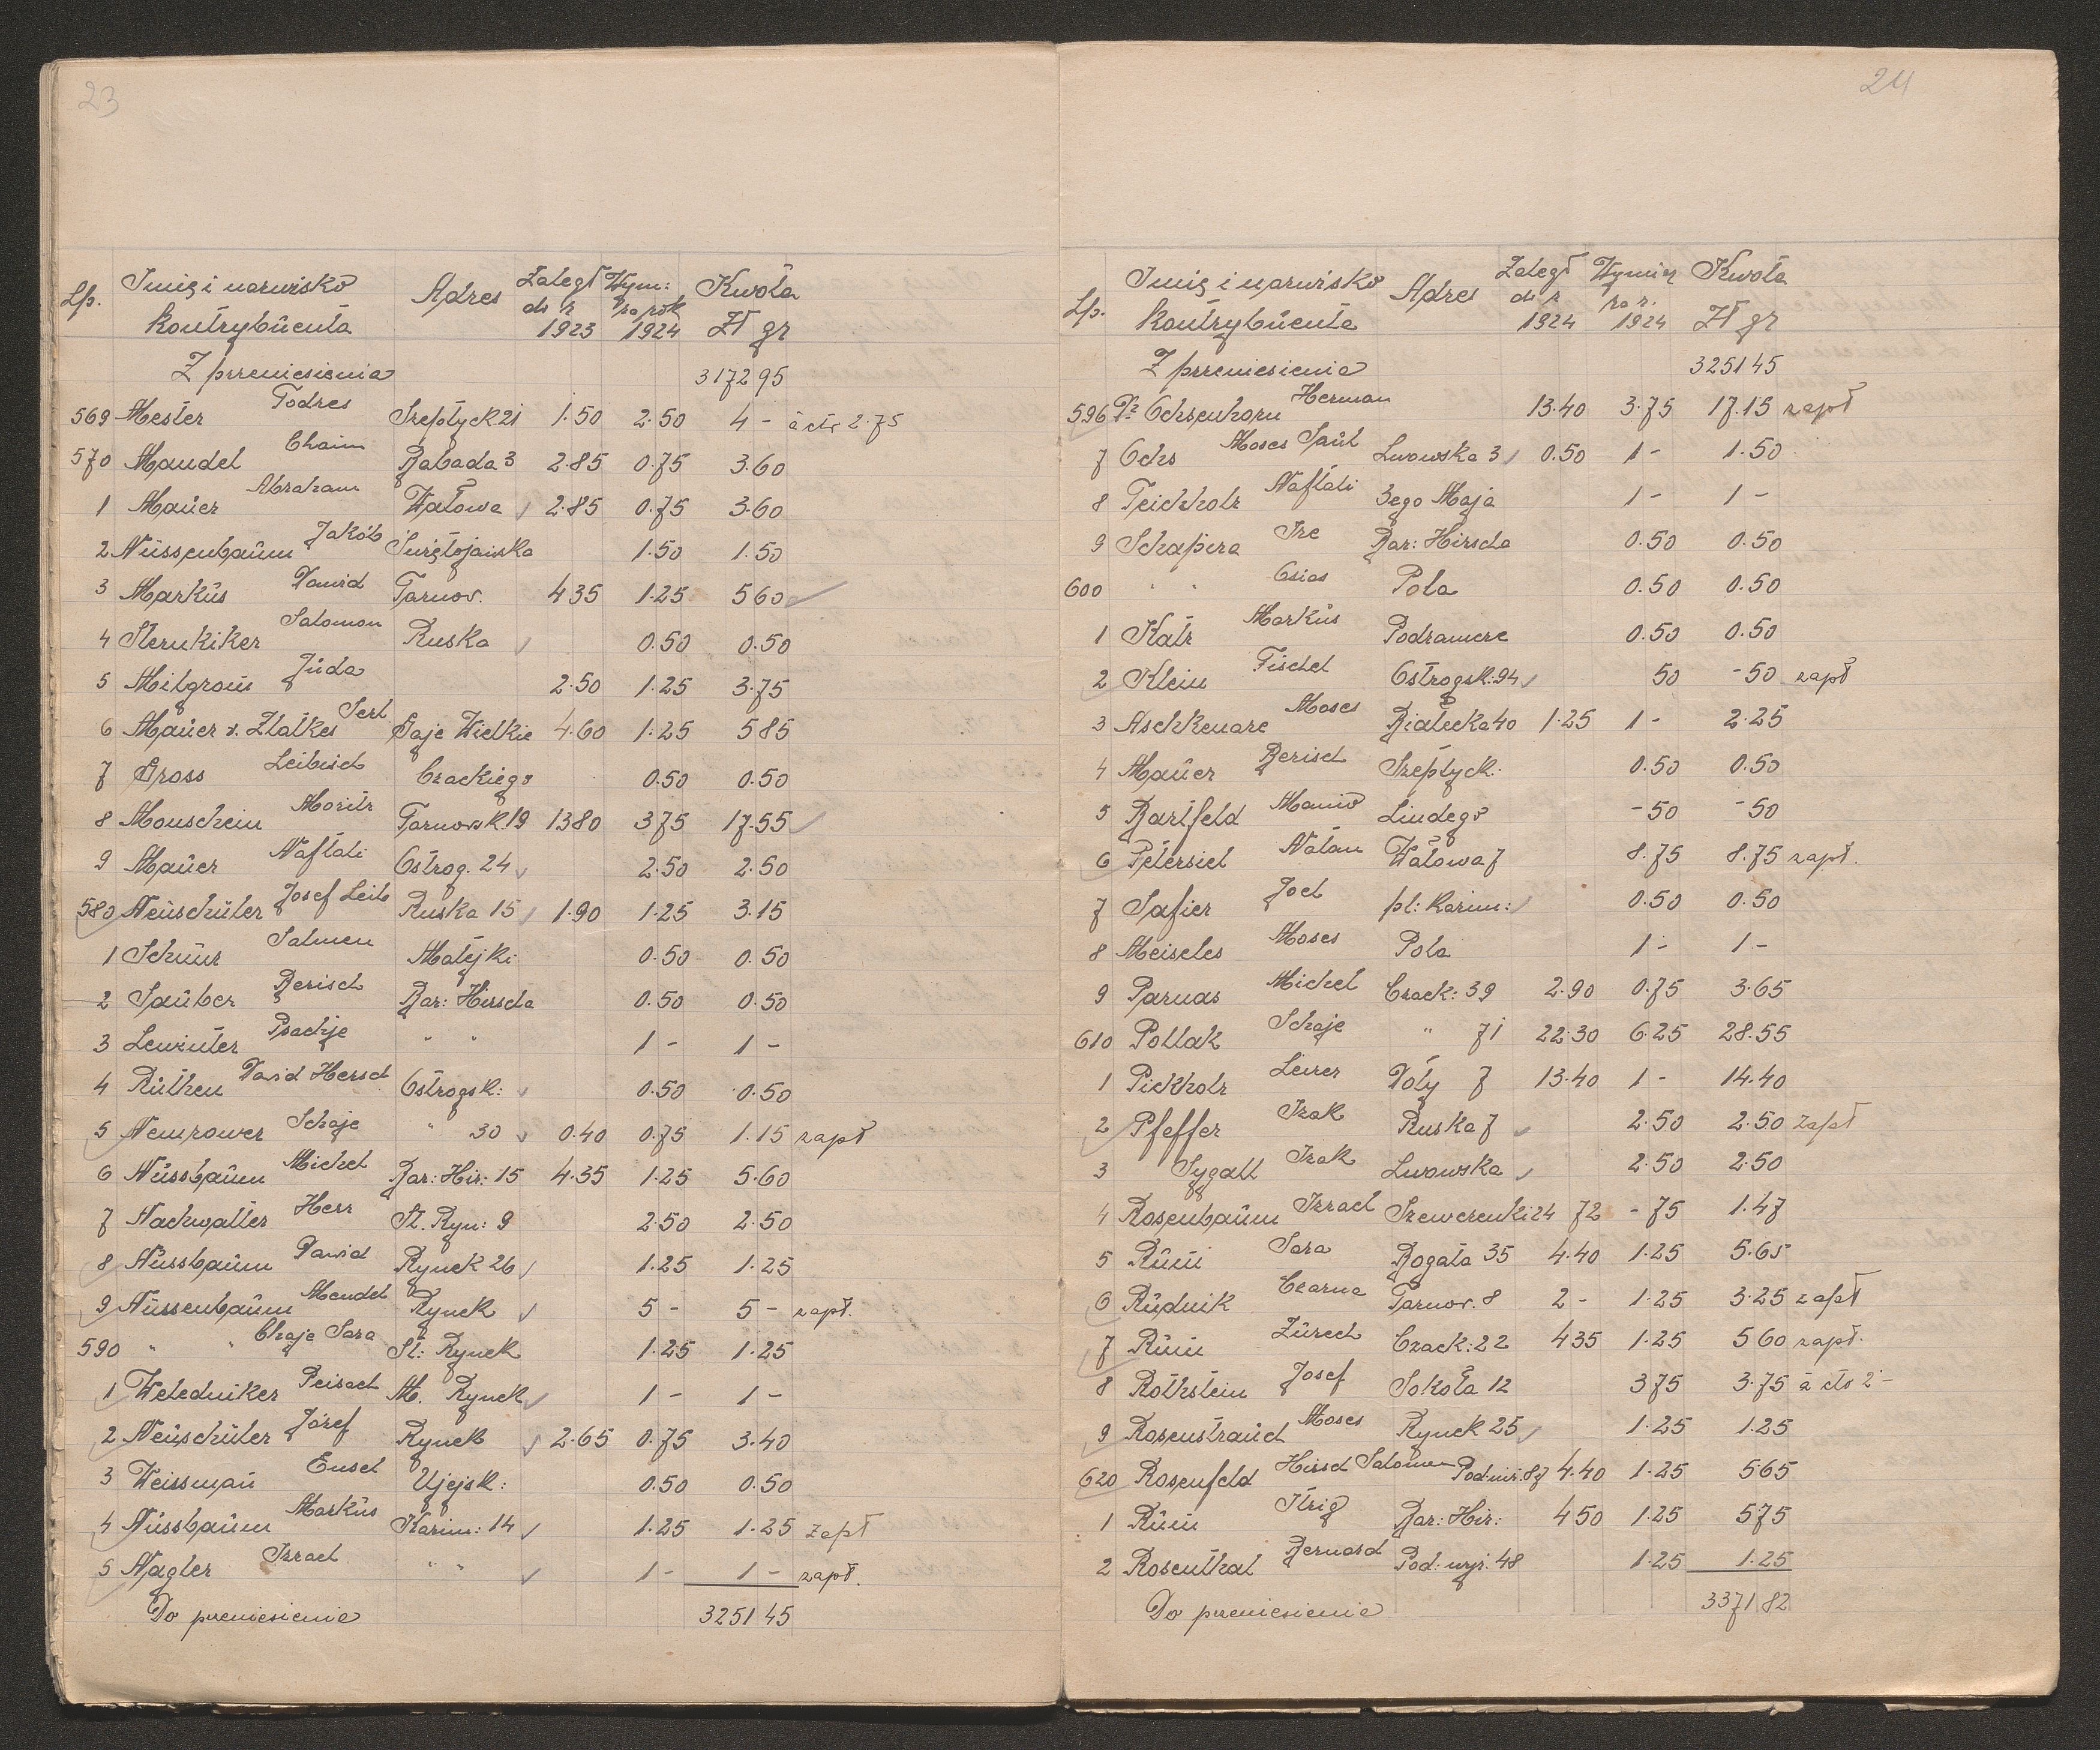 23
Lp. Imię i nazwisko kontrybuenta Adres Zaległ do r 1923 Wym: za rok 1924 Kwota Zł gr
Z przeniesienia 3172 95
569 Mester Todres Szeptyck. 21 1.50 2.50 4 - à cto 2.75
570 Mandel Chaim Babada 3 2.85 0.75 3.60
1 Mauer Abraham Wałowa 2.85 0.75 3.60
2 Nussenbaum Jakób Świętojańska 1.50 1.50
3 Markus Dawid Tarnow. 4 35 1.25 5 60
4 Sternkiker Salomon Ruska 0.50 0.50
5 Milgrom Juda 2.50 1.25 3.75
6 Mauer v. Zlatkes Serl Gaje Wielkie 4.60 1.25 5 85
7 Gross Leibisch Czackiego 0.50 0.50
8 Monschein Moritz Tarnowsk. 19 13 80 3 75 17.55
9 Mauer Naftali Ostrog. 24 2.50 2.50
580 Neuschüler Josef Leib Ruska 15 1.90 1.25 3.15
1 Schnur Salmen Matejki 0.50 0.50
2 Tauber Berisch Bar: Hirscha 0.50 0.50
3 Lewinter Psachje " " 1 - 1 -
4 Ruthen Dawid Hersch Ostrogsk: 0.50 0.50
5 Nemzower Schaje " 30 0.40 0.75 1.15 zapł
6 Nussbaum Michel Bar: Hir: 15 4.35 1.25 5.60
7 Nachwalter Herz St. Ryn: 9 2.50 2.50
8 Nussbaum Dawid Rynek 26 1.25 1.25
9 Nussenbaum Mendel Rynek 5 - 5 - zapł.
590 " " Chaje Sara St: Rynek 1.25 1.25
1 Weledniker Peisach M. Rynek 1 - 1 -
2 Neuschüler Józef Rynek 2.65 0.75 3.40
3 Weissman Ensel Ujejsk: 0.50 0.50
4 Nussbaum Markus Kazim: 14 1.25 1.25 zapł
5 Nagler Izrael " " 1 - 1 - zapł.
Do przeniesienia 3251 45
24
Lp. Imię i nazwisko kontrybuenta Adres Zaległ do r 1924 Wymiar za r. 1924 Kwota Zł gr
Z przeniesienia 3251 45
596 Dr Ochsenhorn Herman 13.40 3.75 17.15 zapł
7 Ochs Moses Saul Lwowska 3 0.50 1 - 1.50
8 Teichholz Naftali 3ego Maja 1 - 1 -
9 Schapira Ire Bar: Hirscha 0.50 0.50
600 " " Osias Pola 0.50 0.50
1 Katz Markus Podzamcze 0.50 0.50
2 Klein Fischel Ostrogsk: 94 50 - 50 zapł
3 Aschkenaze Moses Białecka 40 1.25 1 - 2.25
4 Mauer Berisch Szeptyck: 0.50 0.50
5 Bartfeld Manio Lindego - 50 - 50
6 Petersiel Natan Wałowa 7 8.75 8.75 zapł.
7 Safier Joel pl: Kazim: 0.50 0.50
8 Meiseles Moses Pola 1 - 1 -
9 Parnas Michel Czack: 39 2.90 0.75 3.65
610 Pollak Schaje " 71 22.30 6.25 28.55
1 Pickholz Leizer Doły 7 13.40 1 - 14.40
2 Pfeffer Izak Ruska 7 2.50 2.50 zapł
3 Sygall Izak Lwowska 2.50 2.50
4 Rosenbaum Izrael Szewczenki 24 72 - 75 1.47
5 Rum Sara Rogata 35 4.40 1.25 5.65
6 Rudnik Czarna Tarnow. 8 2 - 1.25 3.25 zapł
7 Rum Zurech Czack: 22 4 35 1.25 5 60 zapł.
8 Rothstein Josef Sokoła 12 3 75 3.75 à cto 2 -
9 Rosenstrauch Moses Rynek 25 1.25 1.25
620 Rosenfeld Hirsch Salomon Pod: wi: 87 4.40 1.25 5 65
1 Rum Strig Bar: Hir: 4 50 1.25 5 75
2 Rosenthal Bernard Pod: 48 1.25 1.25
Do przeniesienia 3371 82